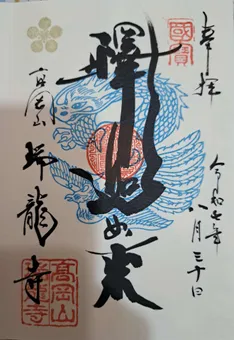 國寶
奉拝
令和七年
八月三十日
釋迦如来
高岡山
瑞龍寺
高岡山
瑞龍寺